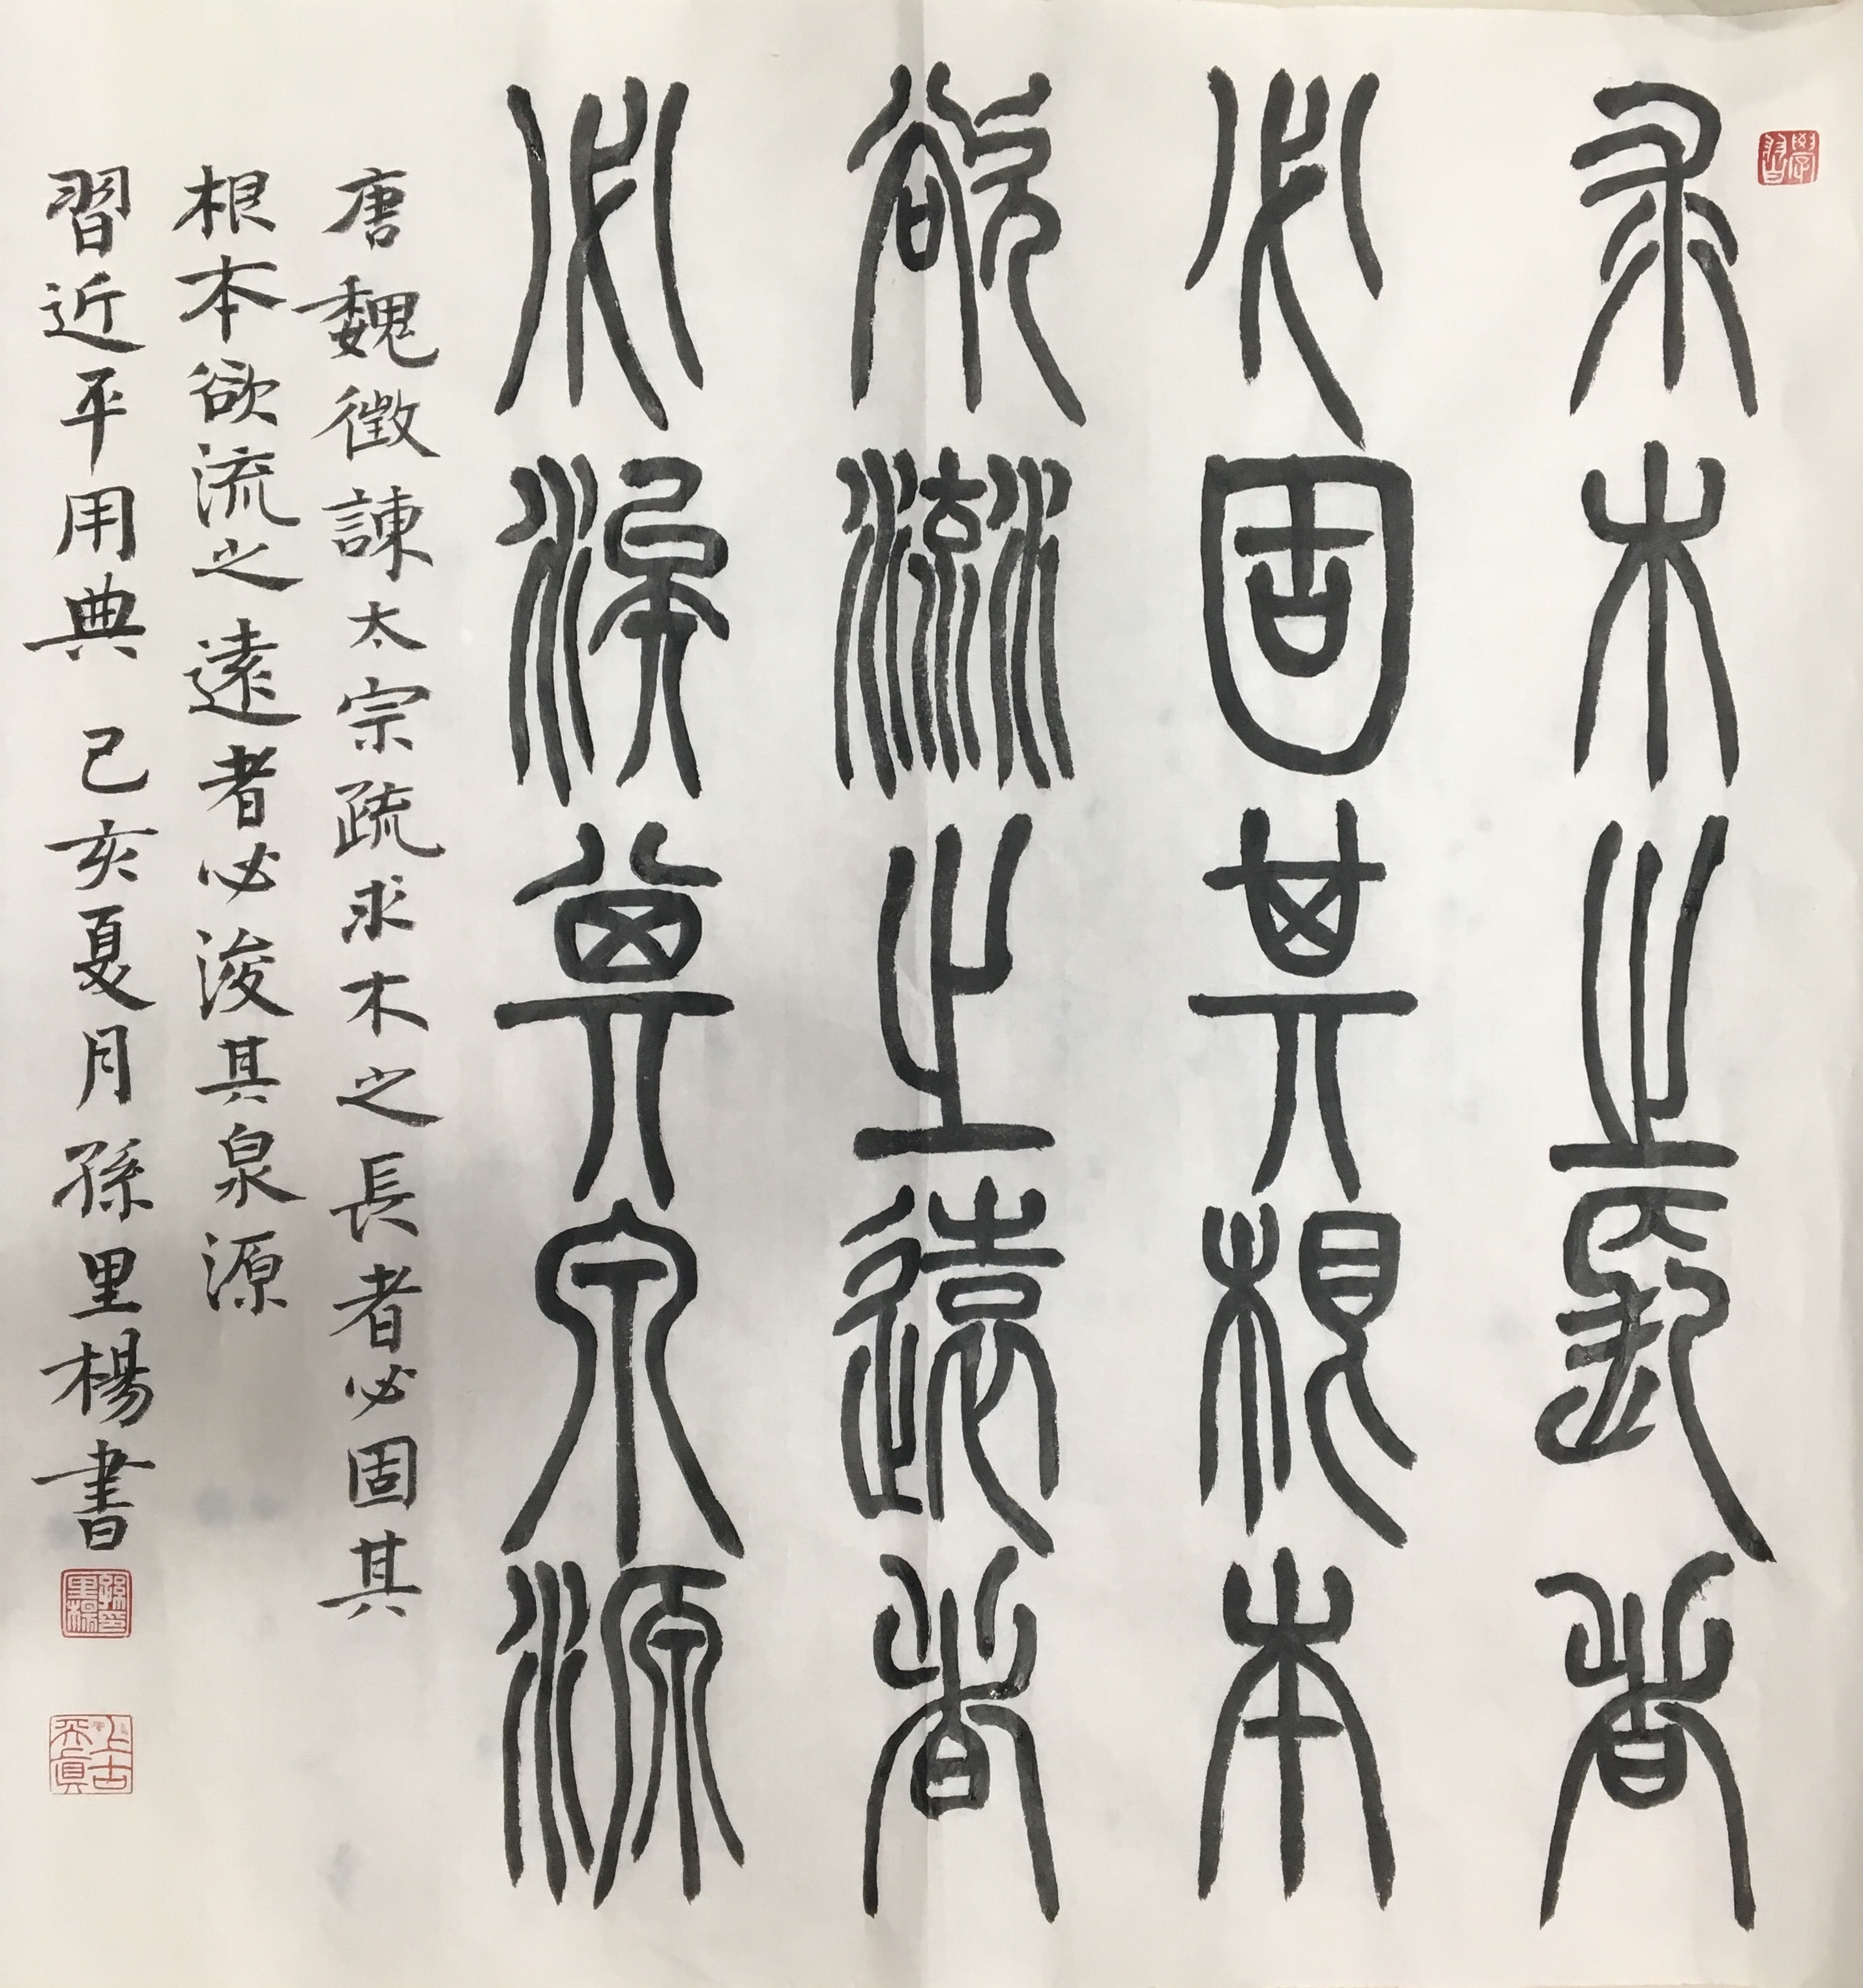 學習
求木之長者
必固其根本
欲流之遠者
必浚其泉源
唐魏徵諫太宗疏求木之長者必固其
根本欲流之遠者必浚其泉源
習近平用典 己亥夏月孫里楊書
孫里楊印
上古天真